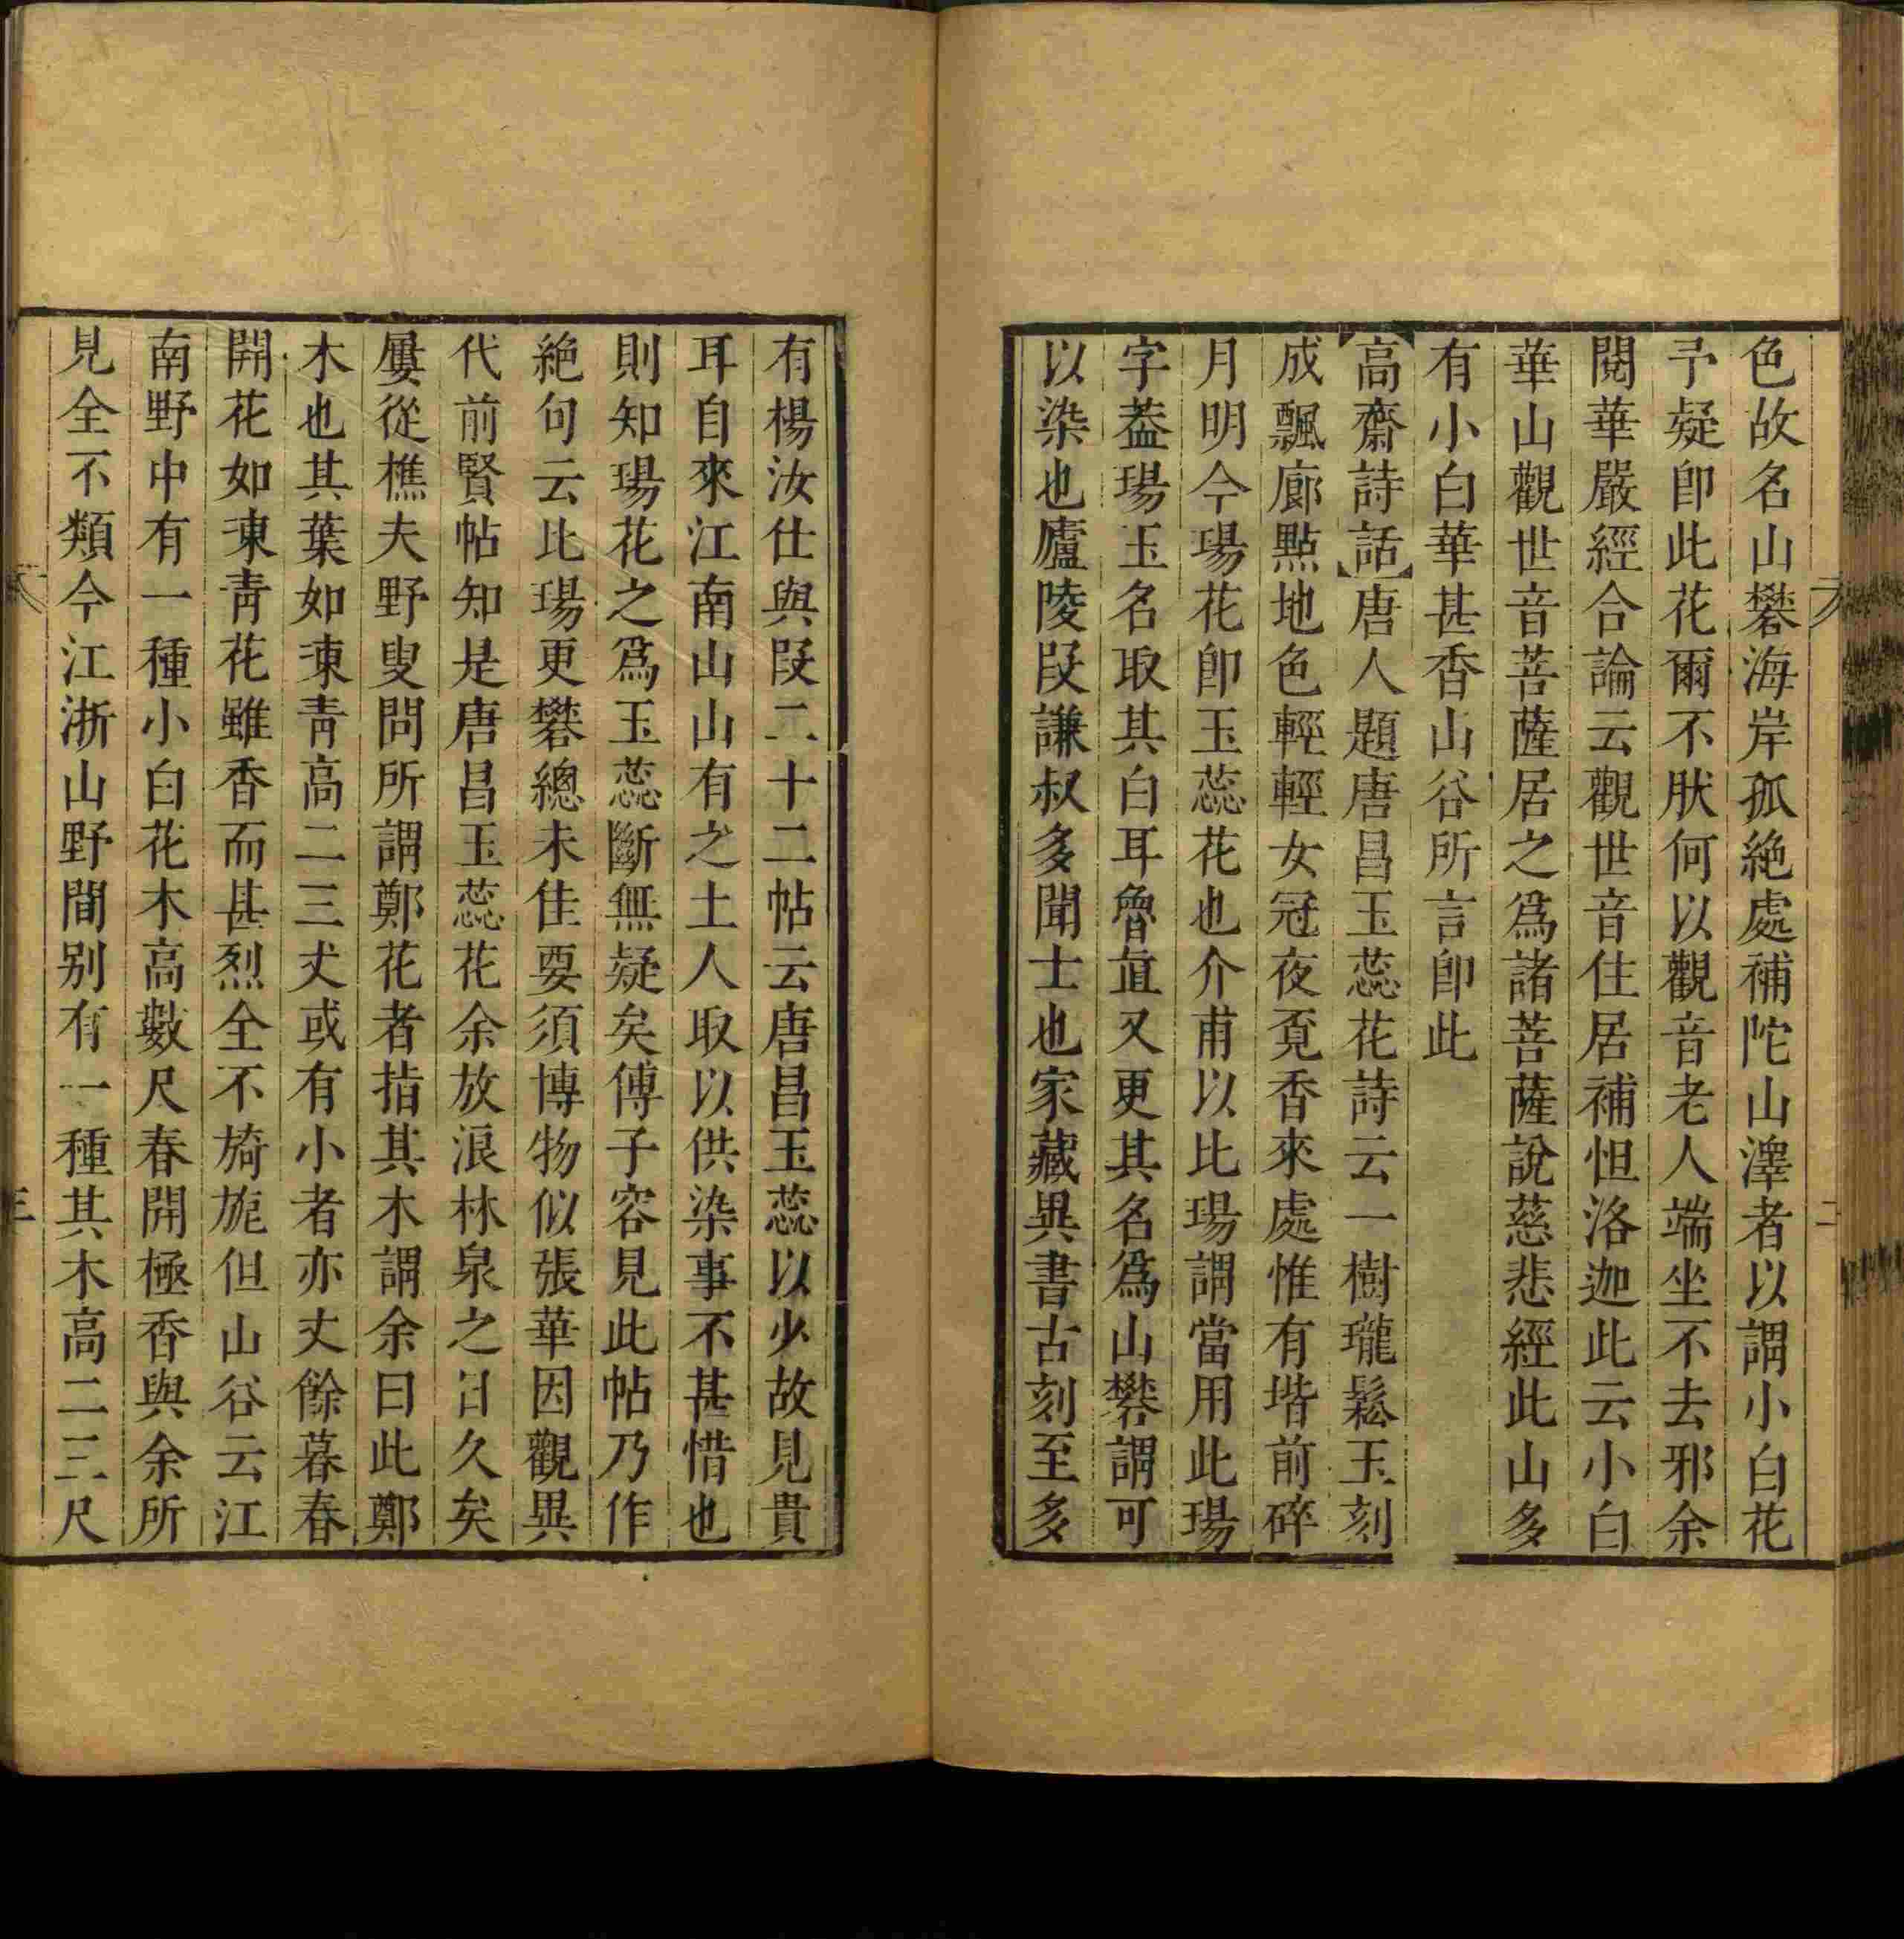 色故名山礬海岸孤絶處補陀山澤者以謂小白花
予疑卽此花爾不肰何以觀音老人端坐不去邪余
閱華嚴經合論云觀世音住居補怛洛迦此云小白
華山觀世音菩薩居之爲諸菩薩說慈悲經此山多
有小白華甚香山谷所言卽此
【高齋詩話】唐人題唐昌玉蕊花詩云一樹瓏鬆玉刻
成飄廊點地色輕輕女冠夜覔香來處惟有堦前碎
月明今瑒花卽玉蕊花也介甫以比瑒謂當用此瑒
字葢瑒玉名取其白耳魯直又更其名爲山礬謂可
以染也廬陵段謙叔多聞士也家藏異書古刻至多
二
有楊汝仕與段二十二帖云唐昌玉蕊以少故見貴
耳自來江南山山有之土人取以供染事不甚惜也
則知瑒花之爲玉蕊斷無疑矣傅子容見此帖乃作
絶句云比瑒更礬總未佳要須博物似張華因觀異
代前賢帖知是唐昌玉蕊花余放浪林泉之日久矣
屢從樵夫野叟問所謂鄭花者指其木謂余曰此鄭
木也其葉如凍青高二三丈或有小者亦丈餘暮春
開花如凍青花雖香而甚烈全不旖旎但山谷云江
南野中有一種小白花木高數尺春開極香與余所
見全不類今江浙山野間别有一種其木高二三尺
三